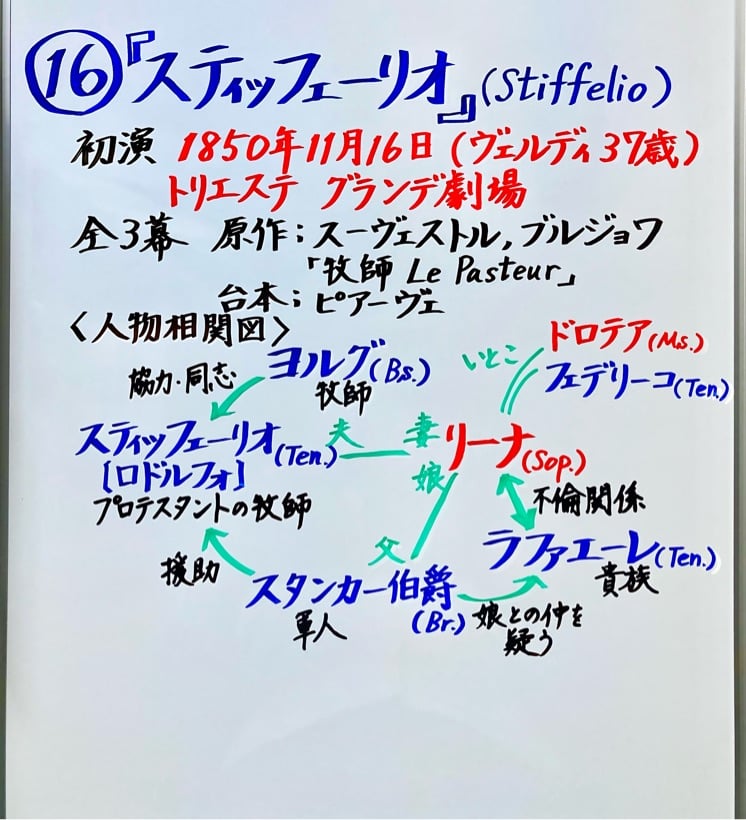 ⑯『スティッフェーリオ』(Stiffelio)
初演 1850年11月16日(ヴェルディ37歳)
トリエステ グランデ劇場
全3幕 原作;スーヴェストル,ブルジョワ
「牧師 Le Pasteur」
台本;ピアーヴェ
〈人物相関図〉
ドロテア(Ms.)
いとこ
フェデリーコ(Ten.)
ヨルグ(Bs.)
牧師
協力・同志
スティッフェーリオ(Ten.)
[ロドルフォ]
プロテスタントの牧師
夫 妻
リーナ(Sop.)
娘
不倫関係
父
ラファエーレ(Ten.)
貴族
援助
スタンカー伯爵
(Br.)
軍人
娘との仲を
疑う